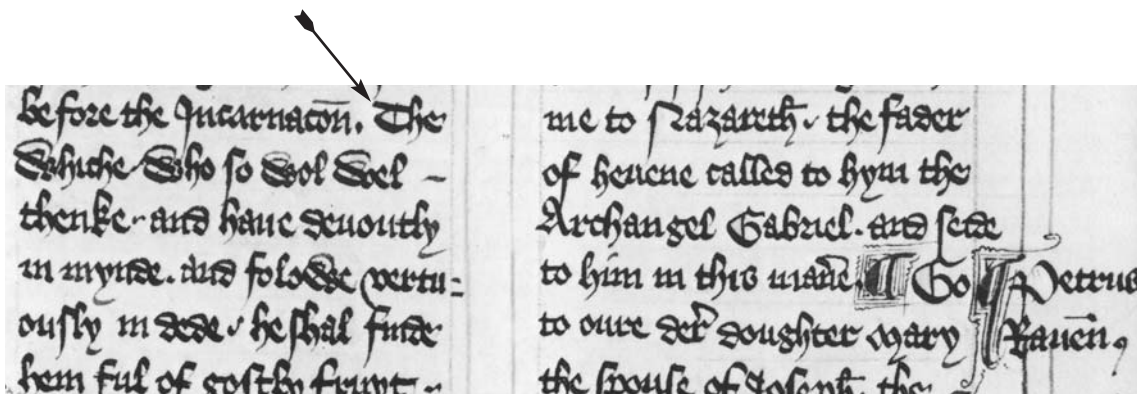 before the Incarnacōn. The
Whiche. Who so wol wel –
thenke. and haue deuoutly
in mynde. and folowe vertu=
ously in dede. he shal finde
hem ful of gostly fruyt.
me to Nazareth. the fader
of heuene called to hym the
Archangel Gabriel. and sede
to him in this manēe. ¶ Go
to oure der̉ doughter Mary
the spouse of Joseph. the
¶ Petrus
Rauēn,